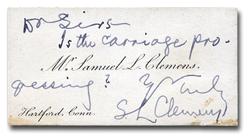 Dr Sirs
Is the carriage pro-
Mr. Samuel L. Clemens.
gressing? Y Truly
S L Clemens
Hartford, Conn.